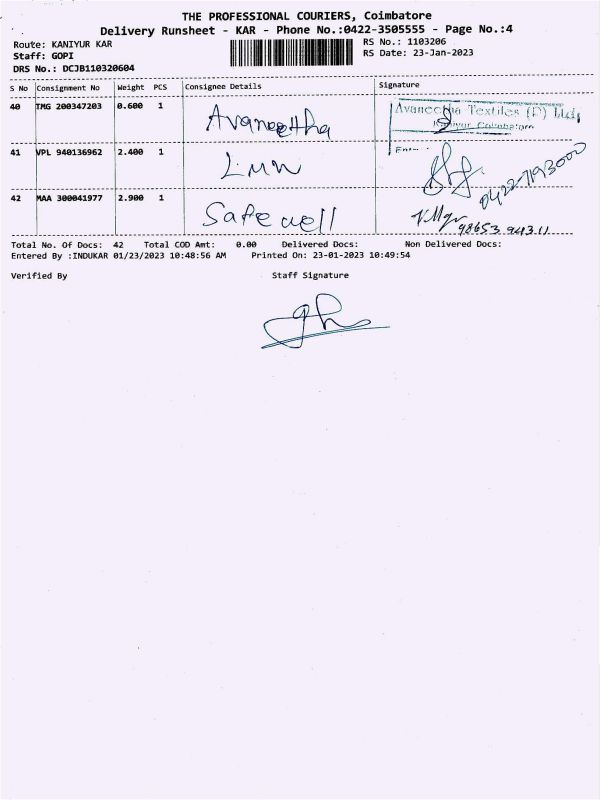 THE PROFESSIONAL COURIERS, Coimbatore
Delivery Runsheet - KAR - Phone No.:0422-3505555 - Page No.:4
Route: KANIYUR KAR
RS No.: 1103206
Staff: GOPI
RS Date: 23-Jan-2023
DRS No.: DCJB110320604
S No Consignment No Weight PCS Consignee Details Signature
40 TMG 200347203 0.600 1 Avaneetha Avaneetha Textiles (P) Ltd,
Kaniyur Coimbatore
41 VPL 940136962 2.400 1 LMW
42 MAA 300041977 2.900 1 Safe well
Total No. Of Docs: 42 Total COD Amt: 0.00 Delivered Docs: Non Delivered Docs:
Entered By :INDUKAR 01/23/2023 10:48:56 AM Printed On: 23-01-2023 10:49:54
Verified By Staff Signature